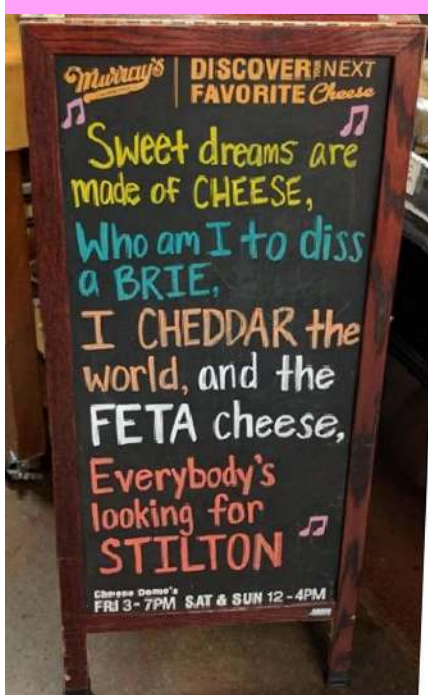 Murray's
DISCOVER YOUR NEXT
FAVORITE Cheese
Sweet dreams are
made of CHEESE,
Who am I to diss
a BRIE,
I CHEDDAR the
world, and the
FETA cheese,
Everybody's
looking for
STILTON
Cheese Demo's
FRI 3-7PM SAT & SUN 12-4PM